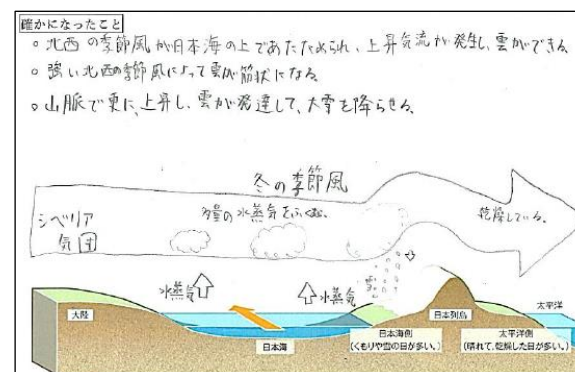 確かになったこと
○北西の季節風が日本海の上であたためられ、上昇気流が発生し、雲ができる
○強い北西の季節風によって雲が筋状になる
○山脈で更に、上昇し、雲が発達して、大雪を降らせる。
冬の季節風
シベリア
気団
多量の水蒸気をふくむ。
乾燥している。
水蒸気
水蒸気
雪
大陸
日本海
日本海側
(くもりや雪の日が多い。)
日本列島
太平洋側
(晴れて、乾燥した日が多い。)
太平洋